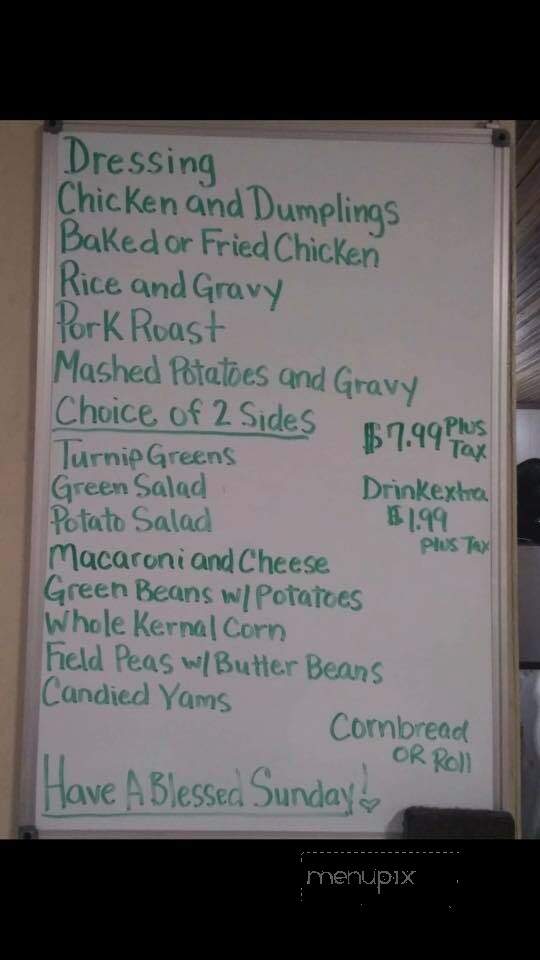 Dressing
Chicken and Dumplings
Baked or Fried Chicken
Rice and Gravy
Pork Roast
Mashed Potatoes and Gravy
Choice of 2 Sides
$7.99 Plus Tax
Turnip Greens
Green Salad
Drink extra
Potato Salad
$1.99
plus Tax
Macaroni and Cheese
Green Beans w/Potatoes
Whole Kernal Corn
Field Peas w/Butter Beans
Candied Yams
Cornbread
OR Roll
Have A Blessed Sunday!
menupix